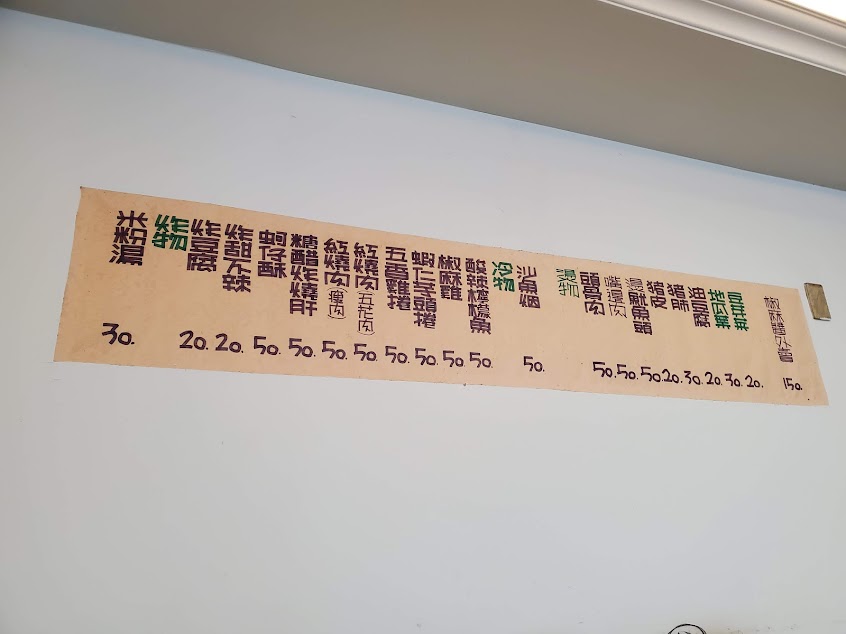 米粉湯 30.
炸物
炸豆腐 20.
炸甜不辣 20.
蚵仔酥 50.
糖醋炸燒肝 50.
紅燒肉(瘦肉) 50.
紅燒肉(五花肉) 50.
五香雞捲 50.
蝦仁芋頭捲 50.
椒麻雞 50.
酸辣檸檬魚 50.
冷物
沙魚烟 50.
湯物
頭骨肉 50.
嘴邊肉 50.
湯魷魚頭 50.
豬皮 20.
豬肺 30.
油豆腐 20.
地瓜葉 30.
豆芽菜 20.
椒麻雞外賣 150.